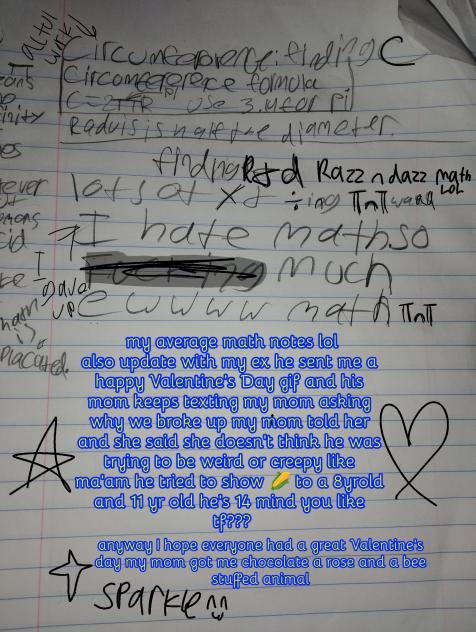 Circumference: finding C
Circumference formula
C=2πR use 3.14 for pi
Raduis is half the diameter.
finding R+d Razz n dazz math
LOL
lots of x+ ÷ing
I hate math so
much
I
gave
up
ewwww math TnT
placated.
my average math notes lol
also update with my ex he sent me a
happy Valentine's Day gif and his
mom keeps texting my mom asking
why we broke up my mom told her
and she said she doesn't think he was
trying to be weird or creepy like
ma'am he tried to show 🌽 to a 8yrold
and 11 yr old he's 14 mind you like
tf???
anyway I hope everyone had a great Valentine's
day my mom got me chocolate a rose and a bee
stuffed animal
sparkle